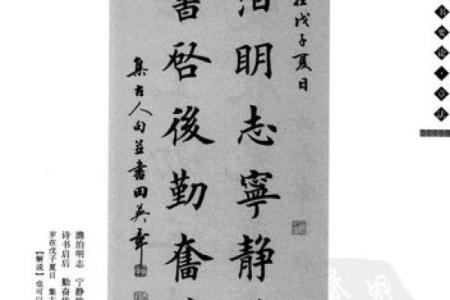 在戊子夏日
泊明志寧静
書啓後勤奮
集古人句並書田英章
澹泊明志　宁静
诗书启后　勤奋
岁在戊子夏日　集
【解说】也可
书要论·章法